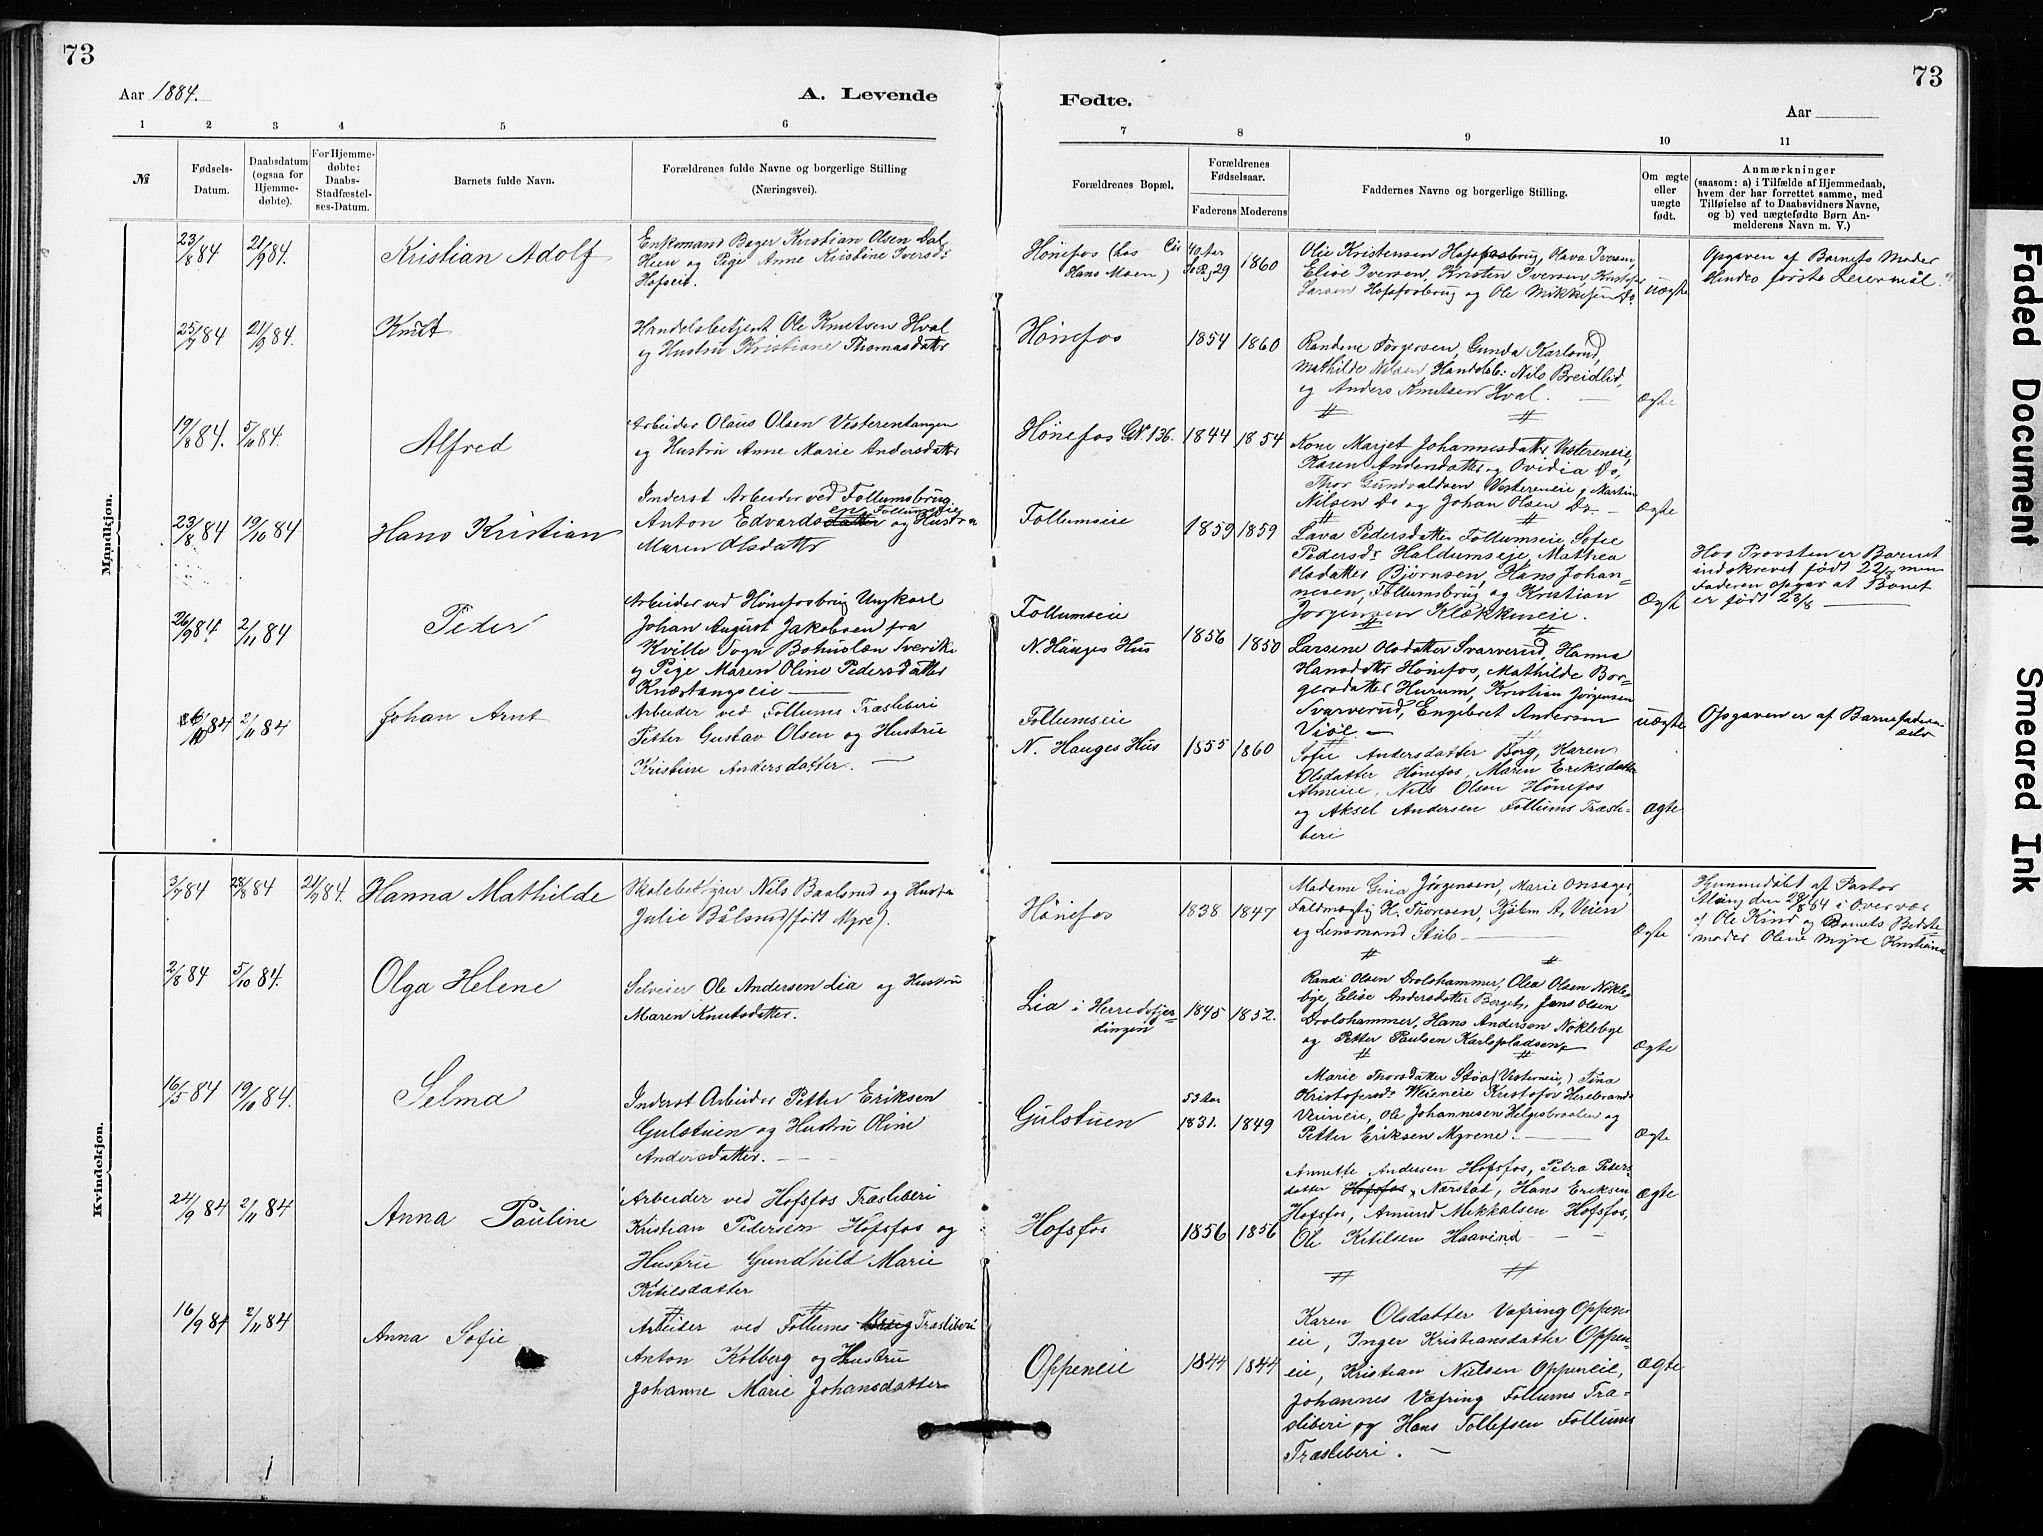 73
Aar 1884.
A. Levende
1 2 3 4 5 6
№
Fødsels-
Datum.
Daabsdatum
(ogsaa for
Hjemme-
døbte).
For Hjemme-
døbte:
Daabs-
Stadfæstel-
ses-Datum.
Barnets fulde Navn.
Forældrenes fulde Navne og borgerlige Stilling
(Næringsvei).
Mandkjøn.
23/8 84 21/9 84.
Kristian Adolf
Enkemand Bager Kristian Olsen Dal
Hien og Pige Anne Kristine Iversdr
Hofseie.
25/7 84 21/9 84.
Knut
Handelsbetjent Ole Knutsen Hval
og Hustru Kristiane Thomasdatter
19/8 84. 5/10 84.
Alfred
Arbeider Olaus Olsen Vesterentangen
og Hustru Anne Marie Andersdatter
23/8 84 19/10 84
Hans Kristian
Inderst Arbeider ved Follumsbrug
en Follumseie
Anton Edvardsdatter og Hustru
Maren Olsdatter
26/9 84. 2/11 84
Peder
Arbeider ved Hønefosbrug Ungkarl
Johan August Jakobsen fra
Kville Sogn Bohuslæn Sverike
og Pige Maren Oline Pedersdatter
Knæstangseie
6/10 84 2/11 84
Johan Arnt
Arbeider ved Follums Træsliberi
Petter Gustav Olsen og Hustrue
Kristine Andersdatter.
Kvindekjøn.
3/7 84 28/8 84 21/9 84.
Hanna Mathilde
Skolebestyrer Nils Baalsrud og Hustru
Julie Bålsrud (født Myre).
2/8 84 5/10 84.
Olga Helene
Selveier Ole Andersen Lia og Hustru
Maren Knutsdatter.
16/5 84 19/10 84.
Selma
Inderst Arbeider Petter Eriksen
Gulstuen og Hustru Oline
Andersdatter.
24/9 84 2/11 84
Anna Pauline
Arbeider ved Hofsfos Træsliberi
Kristian Pedersen Hofsfos og
Hustrue Gundhild Marie
Ketilsdatter
16/9 84 2/11 84
Anna Sofie
Arbeider ved Follums Brug Træsliberi
Anton Kolberg og Hustru
Johanne Marie Johansdatter
73
Fødte.
Aar
7 8 9 10 11
Forældrenes Bopæl.
Forældrenes
Fødselsaar.
Faderens Moderens
Faddernes Navne og borgerlige Stilling.
Om ægte
eller
uægte
født.
Anmærkninger
(saasom: a) i Tilfælde af Hjemmedaab,
hvem der har forrettet samme, med
Tilføielse af to Daabsvidners Navne,
og b) ved uægtefødte Børn An-
melderens Navn m. V.)
Hønefos (hos
Hans Moen)
40 Aar
29
1860
Olie Kristensen Hofsfosbrug, Olava Iversen,
Elise Iversen, Kristen Iversen, Kristofer
Larsen Hofsfosbrug og Ole Mikkelsen Do
uægte
Opgaven af Barnets Moder
Hendes første Leiermål.
Hønefos
1854 1860
Randine Jørgensen, Gunda Karlsrud,
Mathilde Nilsen, Handelsb: Nils Breidlid,
og Anders Knutsen Hval.
Ægte
Hønefos GN. 136.
1844 1854
Kone Marjet Johannesdatter Vestereneie,
Karen Andersdatter og Ovidia Do,
Thor Gundvaldsen Vestereneie, Martin
Nilsen Do og Johan Olsen Do
Ægte
Follumseie
1859 1859
Lava Pedersdatter Follumseie, Sofie
Pedersdr Haldumseie, Mathea
Olsdatter Bjørnsen, Hans Johan-
nesen, Follumsbrug og Kristian
Jørgensen Klækkeneie.
Ægte
Hos Provsten er Barnet
indskrevet født 22/7 men
Faderen opgav at Barnet
er født 23/8
Follumseie
N. Hauges Hus
1856 1850
Larsine Olsdatter Svarverud, Hanna
Hansdatter Hønefos, Mathilde Bor-
gersdatter Hurum, Kristian Jørgensen
Svarverud, Engibret Andersen
Viøle
uægte
Opgaven er af Barnefaderen
selv
Follumseie
N. Hauges Hus
1855 1860
Sofie Andersdatter Borg, Karen
Olsdatter Hønefos, Maren Eriksdatter
Almeie, Nils Olsen Hønefos
og Aksel Andersen Follums Træsli-
beri
Ægte
Hønefos
1838 1847
Madame Gina Jørgensen, Marie Onsager
Fuldmægtig K. Thoresen, Kjøbm A. Veien
og Lensmand Stub
Ægte
Hjemmedøbt af Pastor
den 28/8 84 i Overvær
af Ole Kind og Barnets Bedste-
moder Oline Myre Kristiania
Lia i Herredsfjer-
dingen
1845 1852.
Randi Olsen Drolshammer, Olea Olsen Nøkle-
bye, Elise Andersdatter Berget, Jens Olsen
Drolshammer, Hans Andersen Nøklebye
og Petter Paulsen Karlspladsen
Ægte
Gulstuen
53 Aar
1831. 1849
Marie Thorsdatter Støa (Vesterneie,) Tina
Kristofersdr Weieneie Kristofer Herebrands
Veieneie, Ole Johannesen Helgesbraaten og
Petter Eriksen Myrene.
Ægte
Hofsfos
1856 1856
Annette Andersen Hofsfos, Petra Peders-
datter Hofsfos, Nærstad, Hans Eriksen
Hofsfos, Amund Mikkalsen Hofsfos,
Ole Ketilsen Haavind
Ægte
Oppeneie
1844 1844
Karen Olsdatter Væfring Oppen-
eie, Inger Kristiansdatter Oppen-
eie, Kristian Nielsen Oppeneie,
Johannes Væfring Follums Træ-
sliberi og Hans Tollefsen Follums
Træsliberi.
Ægte
Faded Document
Smeared Ink